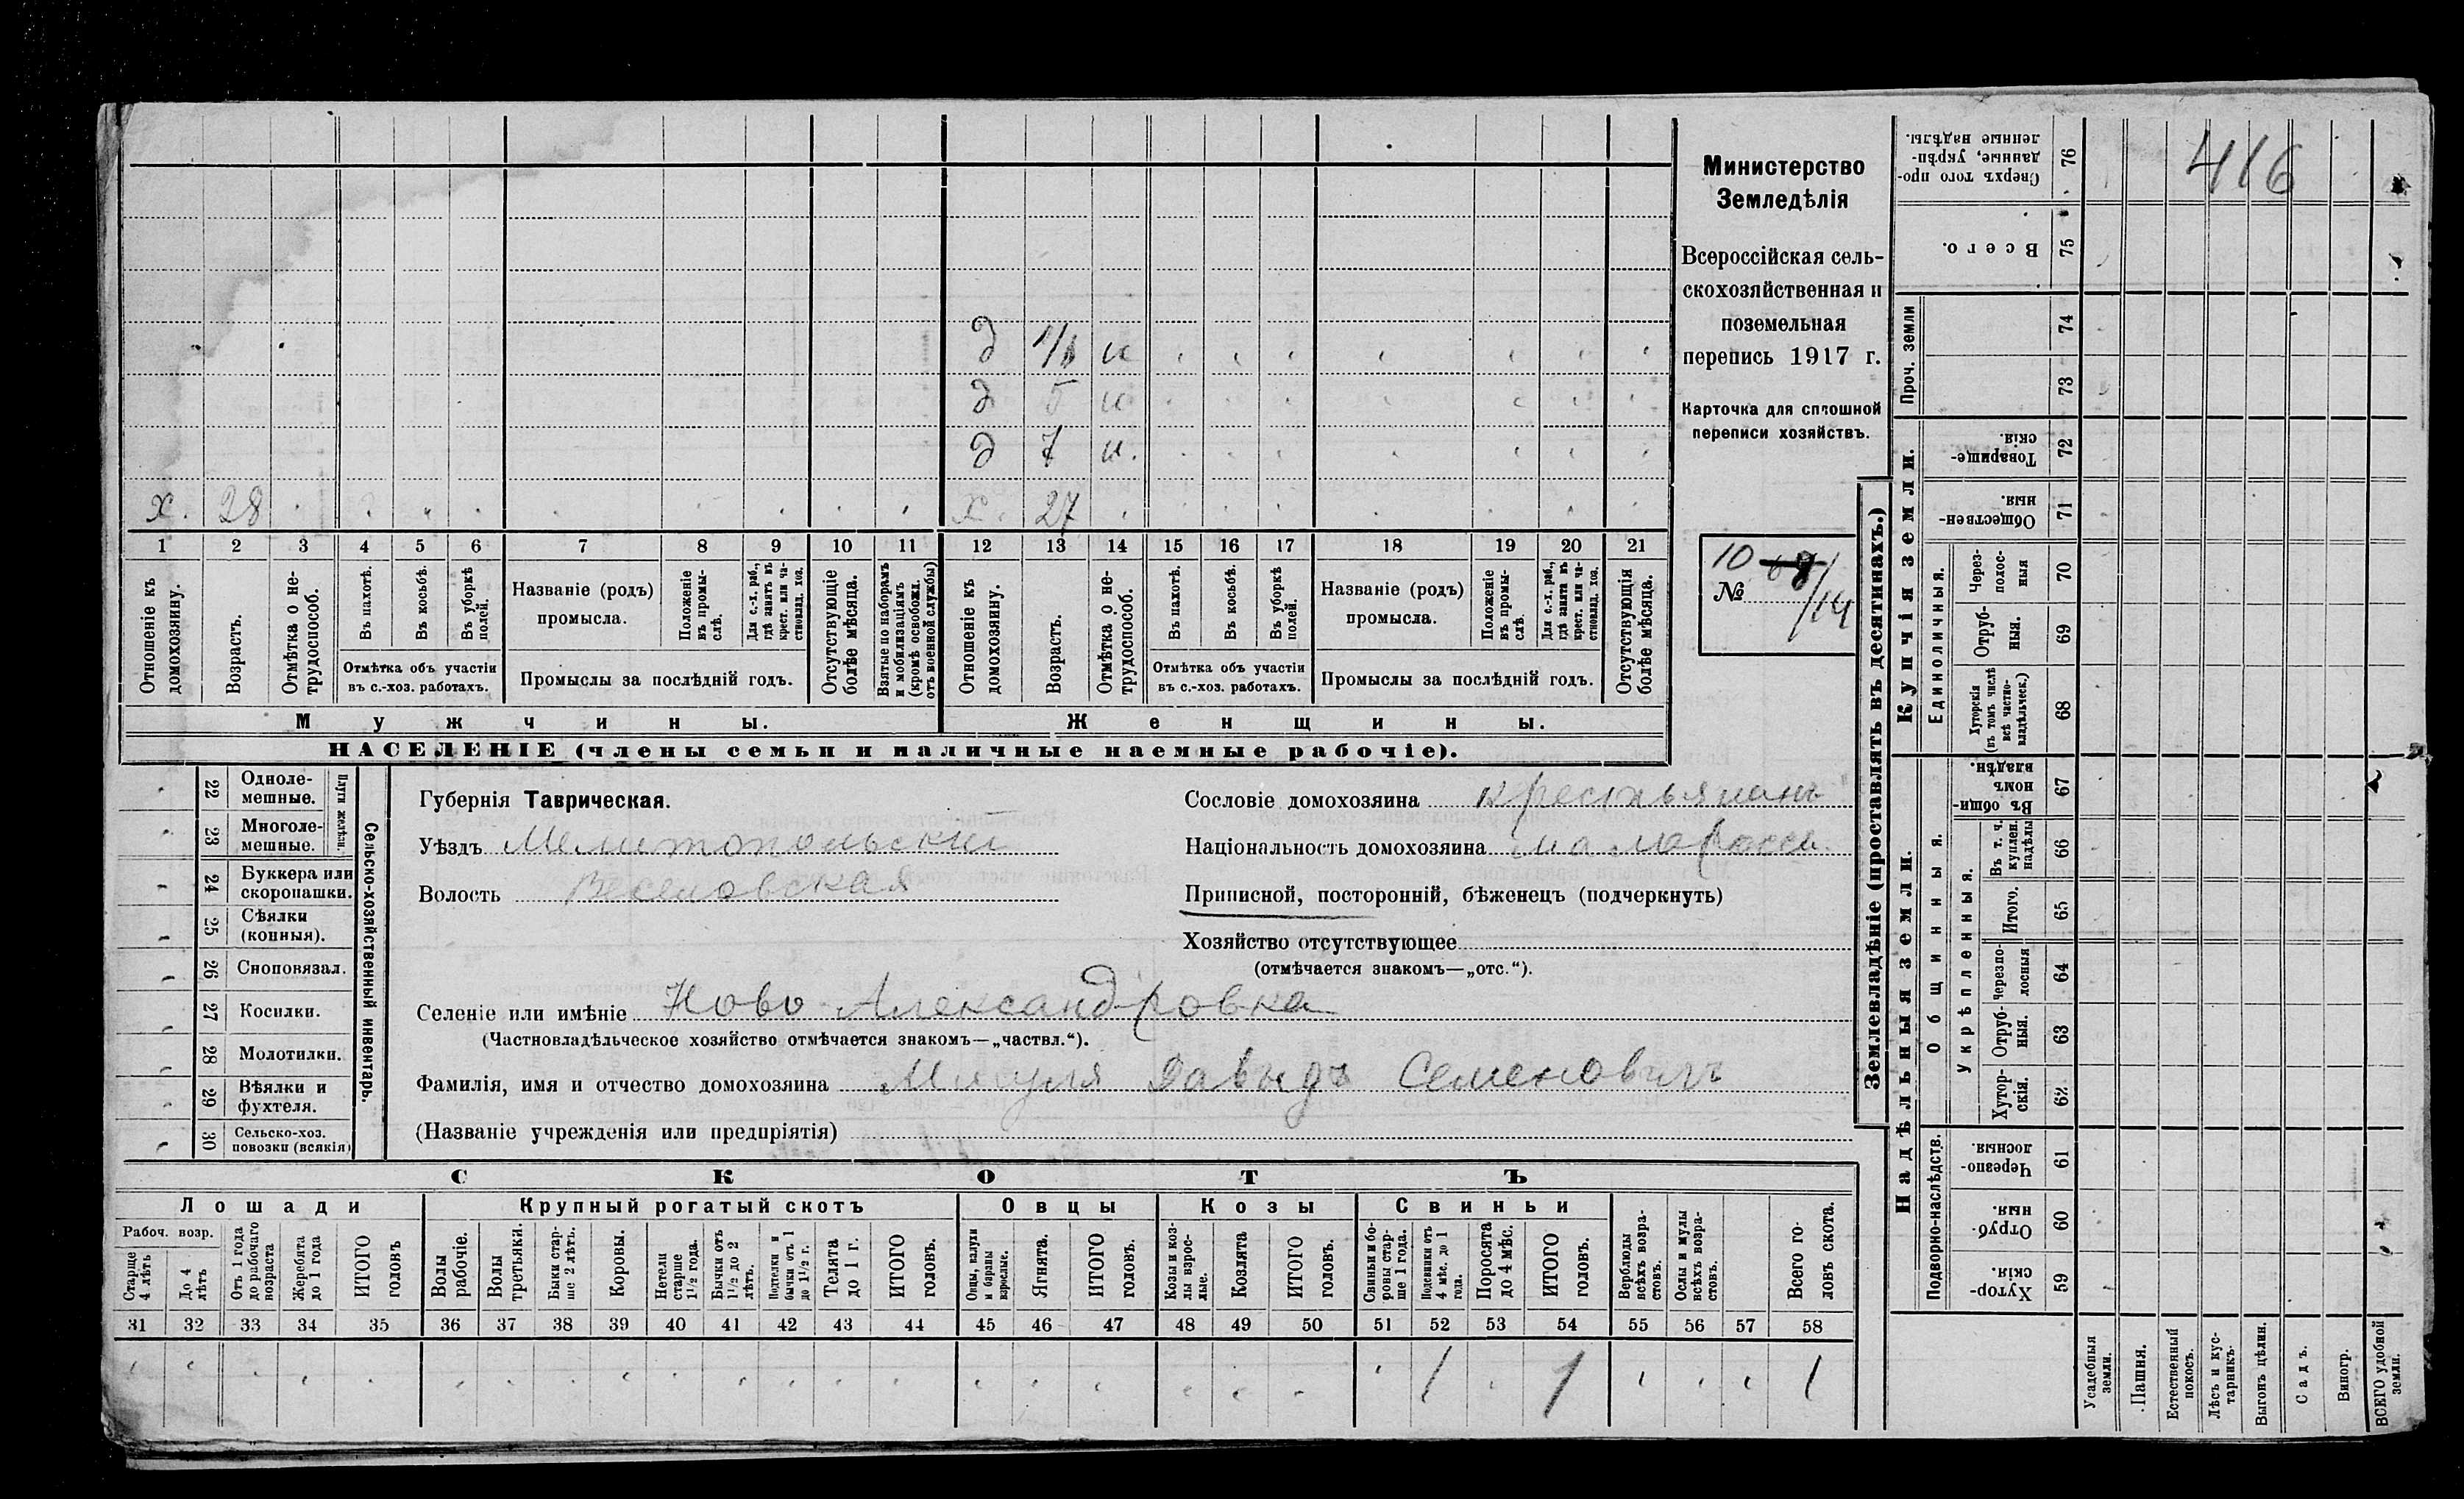 Министерство
Земледѣлія
Всероссійская сель-
скохозяйственная и
поземельная
перепись 1917 г.
Карточка для сплошной
переписи хозяйствъ.
10 68/14
№
416
д 1/6 н
д 5 н
д 7 н.
х. 28 х. 27
1 2 3 4 5 6 7 8 9 10 11 12 13 14 15 16 17 18 19 20 21
Отношеніе къ домохозяину.
Возрастъ.
Отмѣтка о не-трудоспособ.
Въ пахотѣ.
Въ косьбѣ.
Въ уборкѣ полей.
Отмѣтка объ участіи
въ с.-хоз. работахъ.
Названіе (родъ)
промысла.
Положеніе въ промы-слѣ.
Для с.-х. раб., гдѣ занятъ въ крест. или ча-стновлад. хоз.
Промыслы за послѣдній годъ.
Отсутствующіе болѣе мѣсяца.
Взятые по наборамъ и мобилизаціямъ (кромѣ освобожд. отъ военной службы)
Отношеніе къ домохозяину.
Возрастъ.
Отмѣтка о не-трудоспособ.
Въ пахотѣ.
Въ косьбѣ.
Въ уборкѣ полей.
Отмѣтка объ участіи
въ с.-хоз. работахъ.
Названіе (родъ)
промысла.
Положеніе въ промы-слѣ.
Для с.-х. раб., гдѣ занята въ крест. или ча-стновлад. хоз.
Промыслы за послѣдній годъ.
Отсутствующія болѣе мѣсяца.
Мужчины.
Женщины.
НАСЕЛЕНІЕ (члены семьи и наличные наемные рабочіе).
22 Одноле-мешные.
23 Многоле-мешные.
Плуги желѣзн.
24 Буккера или скоропашки.
25 Сѣялки (конныя).
26 Сноповязал.
27 Косилки.
28 Молотилки.
29 Вѣялки и фухтеля.
30 Сельско-хоз. повозки (всякія)
Сельско-хозяйственный инвентарь.
Губернія Таврическая.
Уѣздъ Мелитопольскій
Волость Веселовская
Сословіе домохозяина крестьянинъ
Національность домохозяина малоросс.
Приписной, посторонній, бѣженецъ (подчеркнуть)
Хозяйство отсутствующее
(отмѣчается знакомъ—„отс.“).
Селеніе или имѣніе Ново-Александровка
(Частновладѣльческое хозяйство отмѣчается знакомъ—„частвл.“).
Фамилія, имя и отчество домохозяина Давыдъ Семеновичъ
(Названіе учрежденія или предпріятія)
СКОТЪ
Лошади
Крупный рогатый скотъ
Овцы
Козы
Свиньи
Рабоч. возр.
Старше 4 лѣтъ
До 4 лѣтъ
Отъ 1 года до рабочаго возраста
Жеребята до 1 года
ИТОГО головъ
Волы рабочіе.
Волы третьяки.
Быки стар-ше 2 лѣтъ.
Коровы.
Нетели старше 1½ года.
Бычки отъ 1½ до 2 лѣтъ.
Подтелки и бычки отъ 1 до 1½ г.
Телята до 1 г.
ИТОГО головъ.
Овцы, валухи и бараны взрослые.
Ягнята.
ИТОГО головъ.
Козы и коз-лы взрос-лые.
Козлята
ИТОГО головъ.
Свиньи и бо-ровы стар-ше 1 года.
Подсвинки отъ 4 мѣс. до 1 года.
Поросята до 4 мѣс.
ИТОГО головъ.
Верблюды всѣхъ возра-стовъ.
Ослы и мулы всѣхъ возра-стовъ.
Всего го-ловъ скота.
31 32 33 34 35 36 37 38 39 40 41 42 43 44 45 46 47 48 49 50 51 52 53 54 55 56 57 58
1 1 1
Землевладѣніе (проставлять въ десятинахъ.)
Купчія земли.
Надѣльныя земли.
Сверхъ того про-данные, укрѣп-ленные надѣлы. 76
Всего. 75
Проч. земли
74
73
Товарище-скія. 72
Обществен-ныя. 71
Единоличныя.
Через-полос-ныя 70
Отруб-ныя. 69
Хуторскія (въ томъ числѣ всѣ частно-владѣльческ.) 68
Общинныя.
Въ общин-номъ владѣн. 67
Укрѣпленныя.
Въ т. ч. куплен. надѣлы 66
Итого. 65
Черезпо-лосныя 64
Отруб-ныя. 63
Хутор-скія. 62
Подворно-наслѣдств.
Черезпо-лосныя 61
Отруб-ныя. 60
Хутор-скія. 59
Усадебныя земли.
Пашня.
Естественный покосъ.
Лѣсъ и кус-тарникъ.
Выгонъ цѣлин.
Садъ.
Виногр.
ВСЕГО удобной земли.